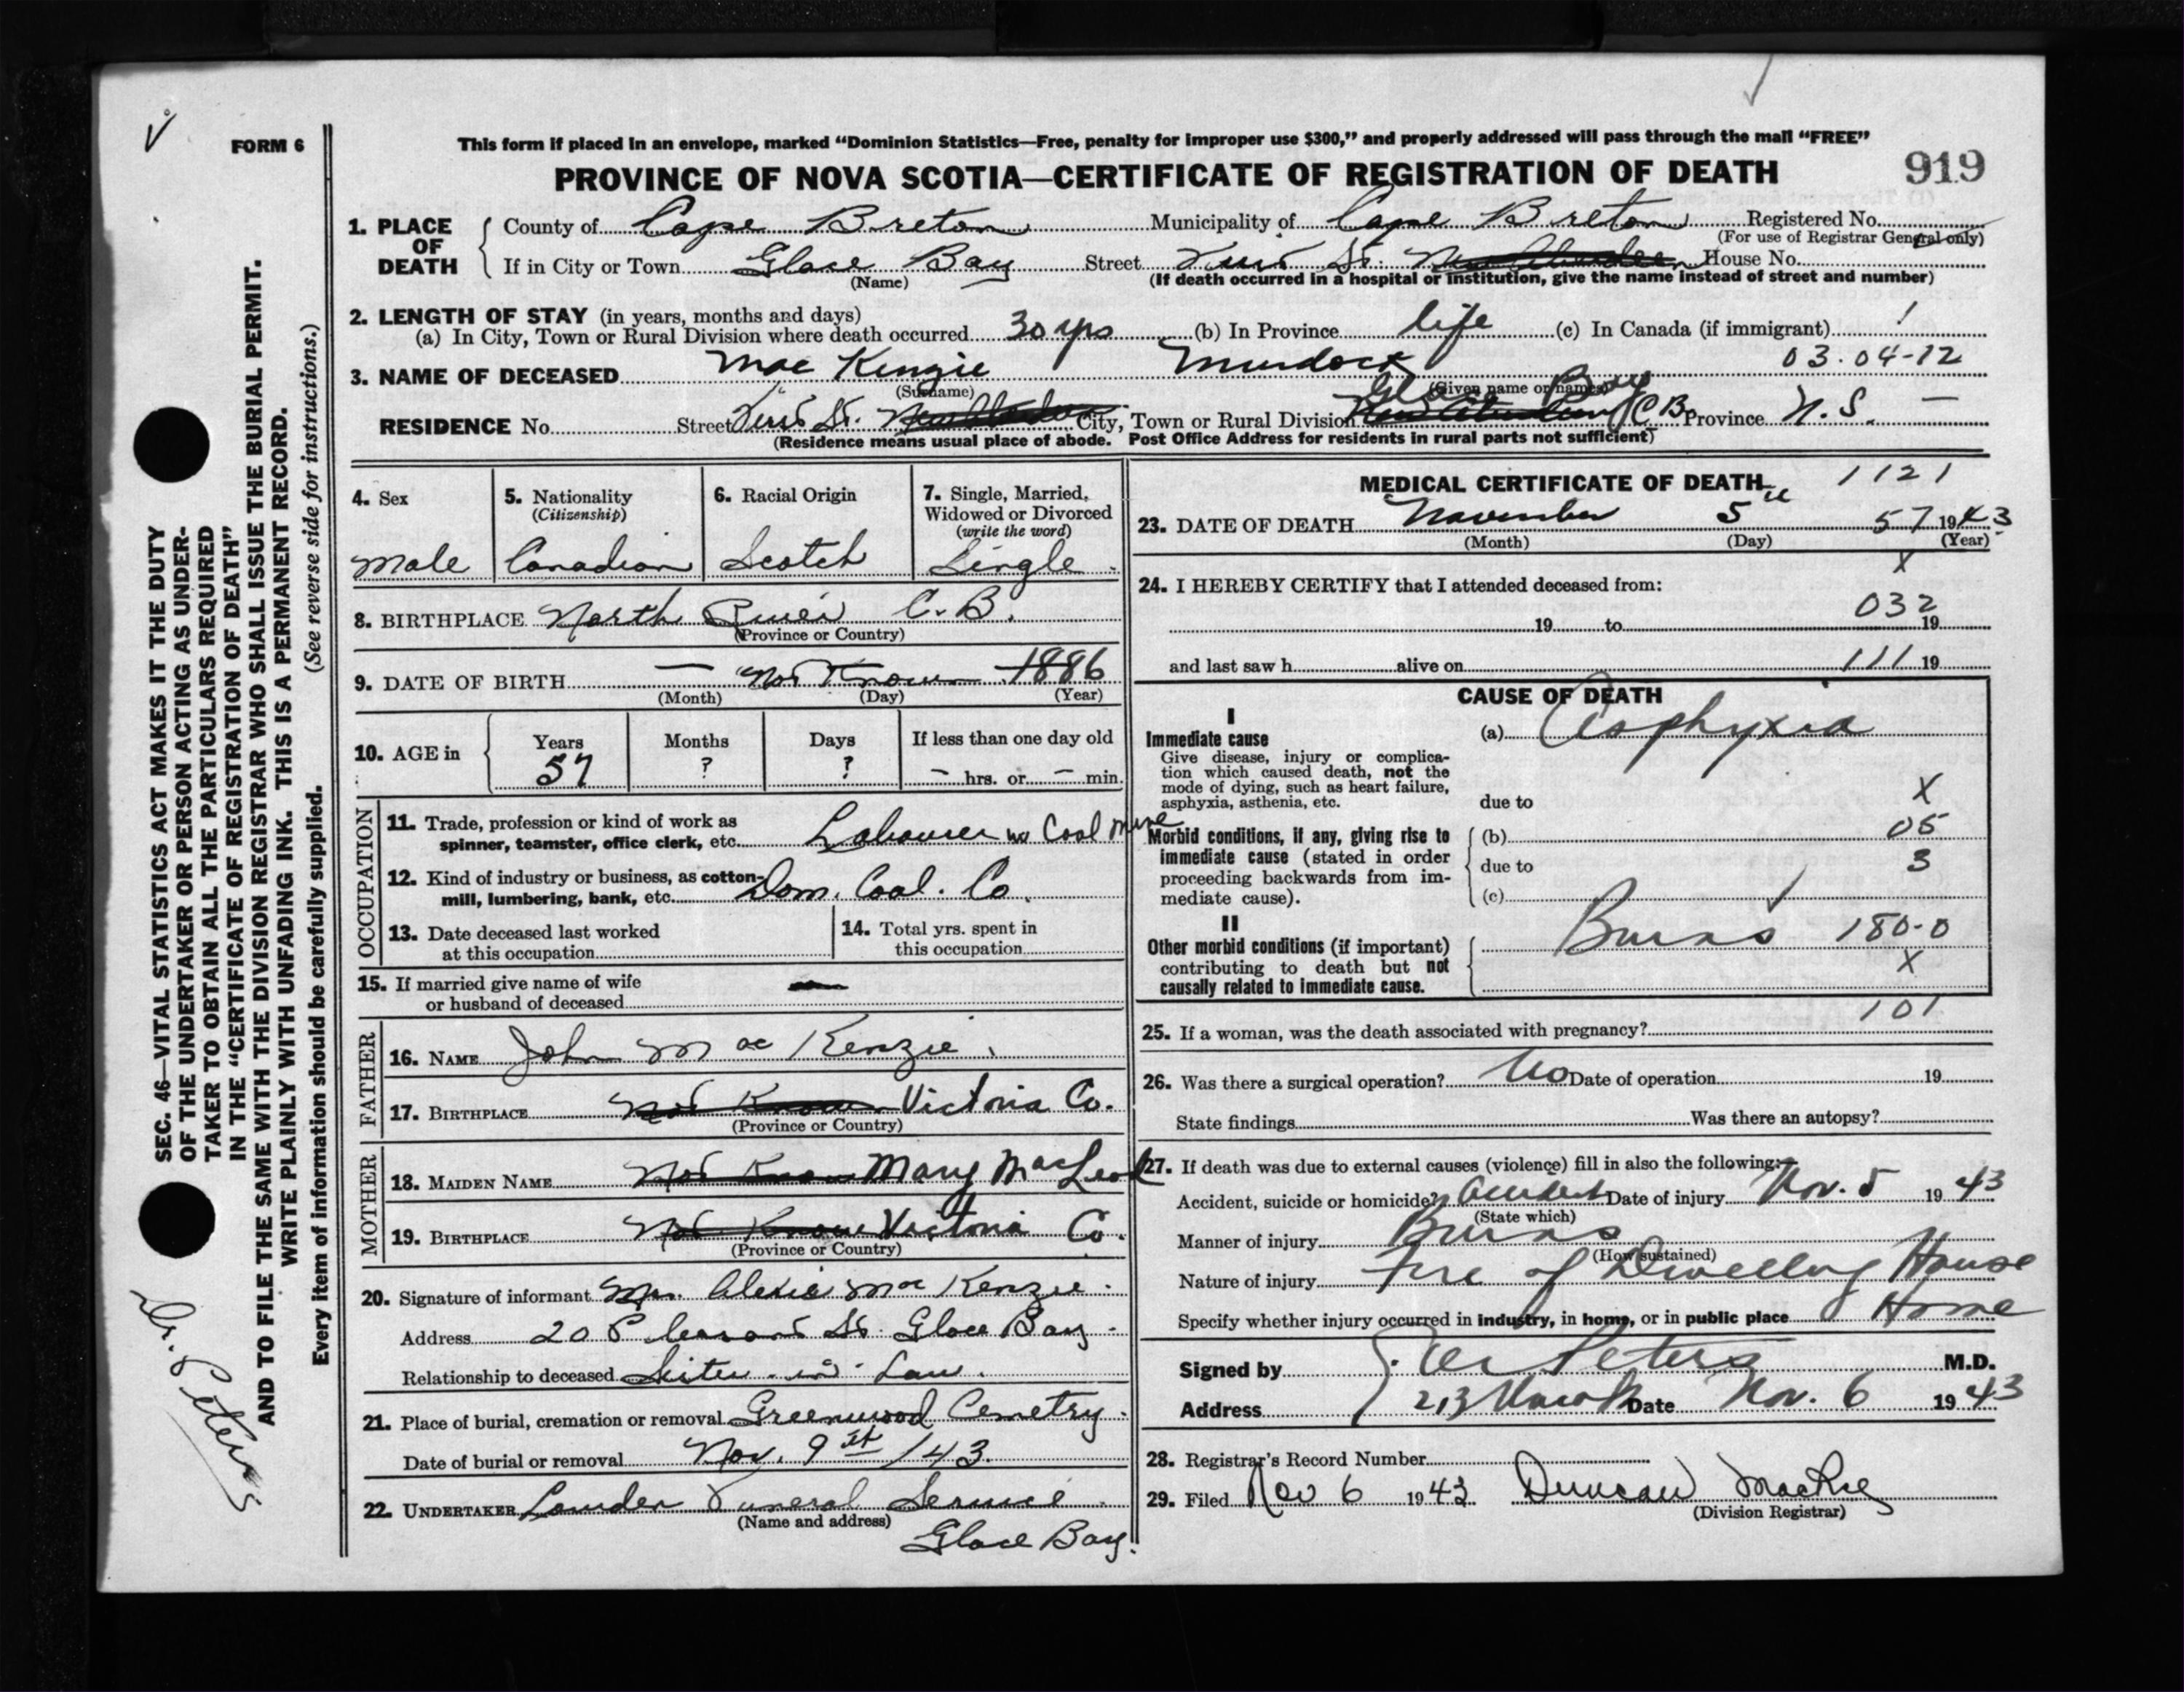 FORM 6
This form if placed in an envelope, marked “Dominion Statistics—Free, penalty for improper use $300,” and properly addressed will pass through the mail “FREE”
PROVINCE OF NOVA SCOTIA—CERTIFICATE OF REGISTRATION OF DEATH
919
1. PLACE OF DEATH
County of Cape Breton Municipality of Cape Breton Registered No.
(For use of Registrar General only)
If in City or Town Glace Bay Street St. New Aberdeen House No.
(Name) (If death occurred in a hospital or institution, give the name instead of street and number)
2. LENGTH OF STAY (in years, months and days)
(a) In City, Town or Rural Division where death occurred 30 yrs (b) In Province life (c) In Canada (if immigrant)
03.04-12
3. NAME OF DECEASED Mac Kenzie Murdock
(Surname) (Given name or names)
Glace Bay
RESIDENCE No. Street St. New Aberdeen City, Town or Rural Division New Aberdeen C B Province N.S. —
(Residence means usual place of abode. Post Office Address for residents in rural parts not sufficient)
4. Sex
Male
5. Nationality
(Citizenship)
Canadian
6. Racial Origin
Scotch
7. Single, Married,
Widowed or Divorced
(write the word)
Single
8. BIRTHPLACE North River C.B.
(Province or Country)
9. DATE OF BIRTH — Not Known 1886
(Month) (Day) (Year)
10. AGE in
Years
57
Months
?
Days
?
If less than one day old
— hrs. or — min.
OCCUPATION
11. Trade, profession or kind of work as
spinner, teamster, office clerk, etc. Labourer in Coal Mine
12. Kind of industry or business, as cotton-
mill, lumbering, bank, etc. Dom. Coal. Co.
13. Date deceased last worked
at this occupation
14. Total yrs. spent in
this occupation
15. If married give name of wife
or husband of deceased —
FATHER
16. NAME John Mac Kenzie
17. BIRTHPLACE Not Known Victoria Co.
(Province or Country)
MOTHER
18. MAIDEN NAME Not Known Mary MacLeod
19. BIRTHPLACE Not Known Victoria Co.
(Province or Country)
20. Signature of informant Mrs. Alexie Mac Kenzie
Address 20 Pleasant St. Glace Bay
Relationship to deceased Sister-in-Law.
21. Place of burial, cremation or removal Greenwood Cemetry
Date of burial or removal Nov. 9th /43.
22. UNDERTAKER Lowden Funeral Service
(Name and address)
Glace Bay.
MEDICAL CERTIFICATE OF DEATH
1121
23. DATE OF DEATH November 5th 57 1943
(Month) (Day) (Year)
X
24. I HEREBY CERTIFY that I attended deceased from:
032
19 to 19
and last saw h alive on 111 19
CAUSE OF DEATH
I
Immediate cause
Give disease, injury or complica-
tion which caused death, not the
mode of dying, such as heart failure,
asphyxia, asthenia, etc.
(a) Asphyxia
due to
X
Morbid conditions, if any, giving rise to
immediate cause (stated in order
proceeding backwards from im-
mediate cause).
(b) 05
due to 3
(c)
II
Other morbid conditions (if important)
contributing to death but not
causally related to immediate cause.
Burns 180-0
X
101
25. If a woman, was the death associated with pregnancy?
26. Was there a surgical operation? No Date of operation 19
State findings Was there an autopsy?
27. If death was due to external causes (violence) fill in also the following:
Accident, suicide or homicide? Accident Date of injury Nov. 5 1943
(State which)
Manner of injury Burns
(How sustained)
Nature of injury Fire of Dwelling House
Specify whether injury occurred in industry, in home, or in public place Home
Signed by Peters M.D.
Address Date Nov. 6 1943
28. Registrar's Record Number
29. Filed Nov 6 1943 Duncan
(Division Registrar)
SEC. 46—VITAL STATISTICS ACT MAKES IT THE DUTY
OF THE UNDERTAKER OR PERSON ACTING AS UNDER-
TAKER TO OBTAIN ALL THE PARTICULARS REQUIRED
IN THE “CERTIFICATE OF REGISTRATION OF DEATH”
AND TO FILE THE SAME WITH THE DIVISION REGISTRAR WHO SHALL ISSUE THE BURIAL PERMIT.
WRITE PLAINLY WITH UNFADING INK. THIS IS A PERMANENT RECORD.
Every item of information should be carefully supplied. (See reverse side for instructions.)
Dr. Peters